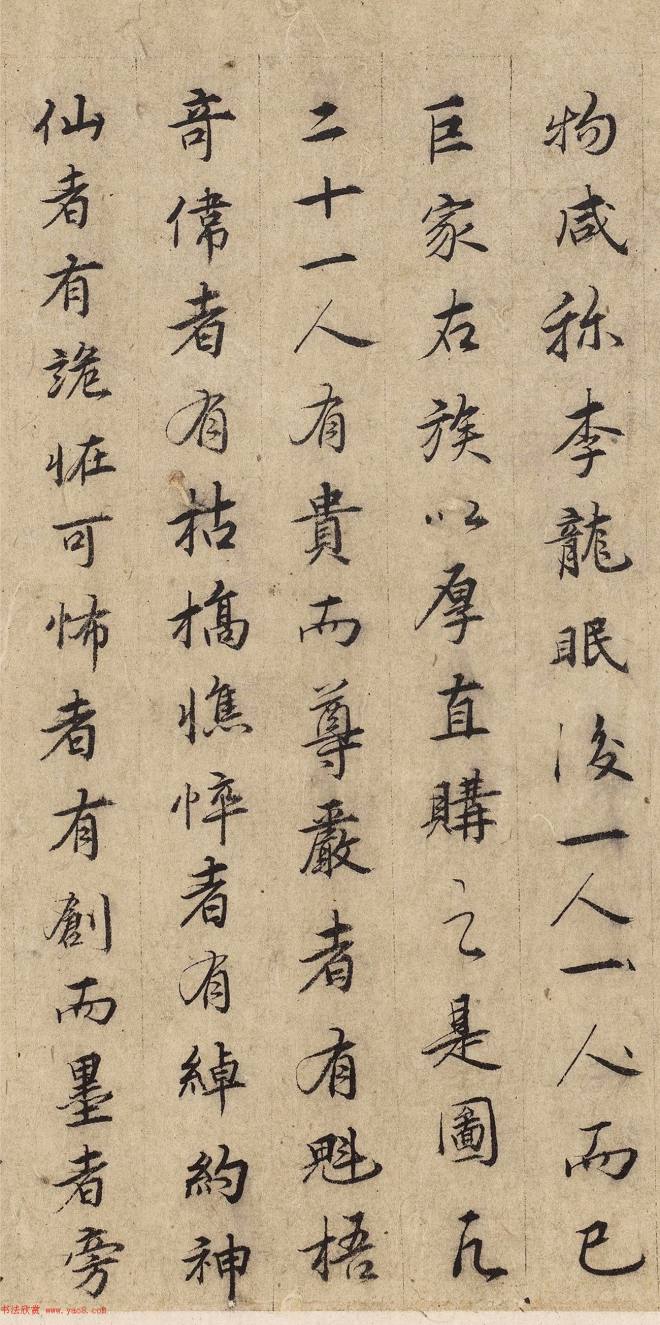 物咸称李龍眠後一人一人而已
巨家右族以厚直購之是圖凡
二十一人有貴而尊嚴者有魁梧
奇偉者有枯槁憔悴者有綽約神
仙者有詭怪可怖者有創而墨者旁
书法欣赏 www.yac8.com